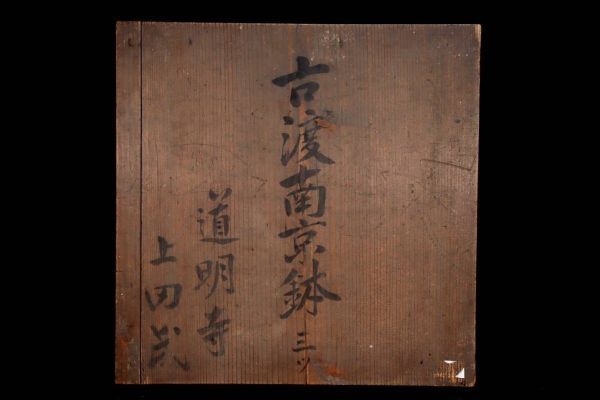 古渡南京鉢 三ツ
道明寺
上田氏